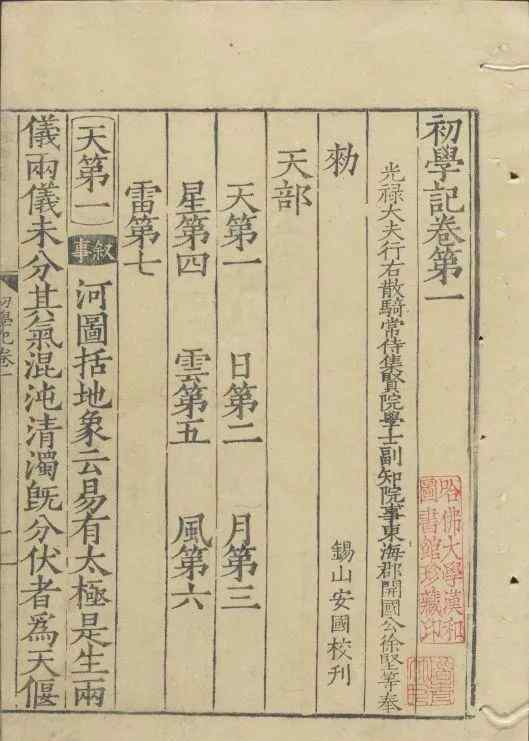 初學記卷第一
光祿大夫行右散騎常侍集賢院學士副知院事東海郡開國公徐堅等奉
勑 錫山安國校刊
天部
天第一 日第二 月第三
星第四 雲第五 風第六
雷第七
天第一 敘事 河圖括地象云易有太極是生兩
儀兩儀未分其氣混沌清濁旣分伏者爲天偃
初學記卷一
哈佛大學漢和圖書館珍藏印